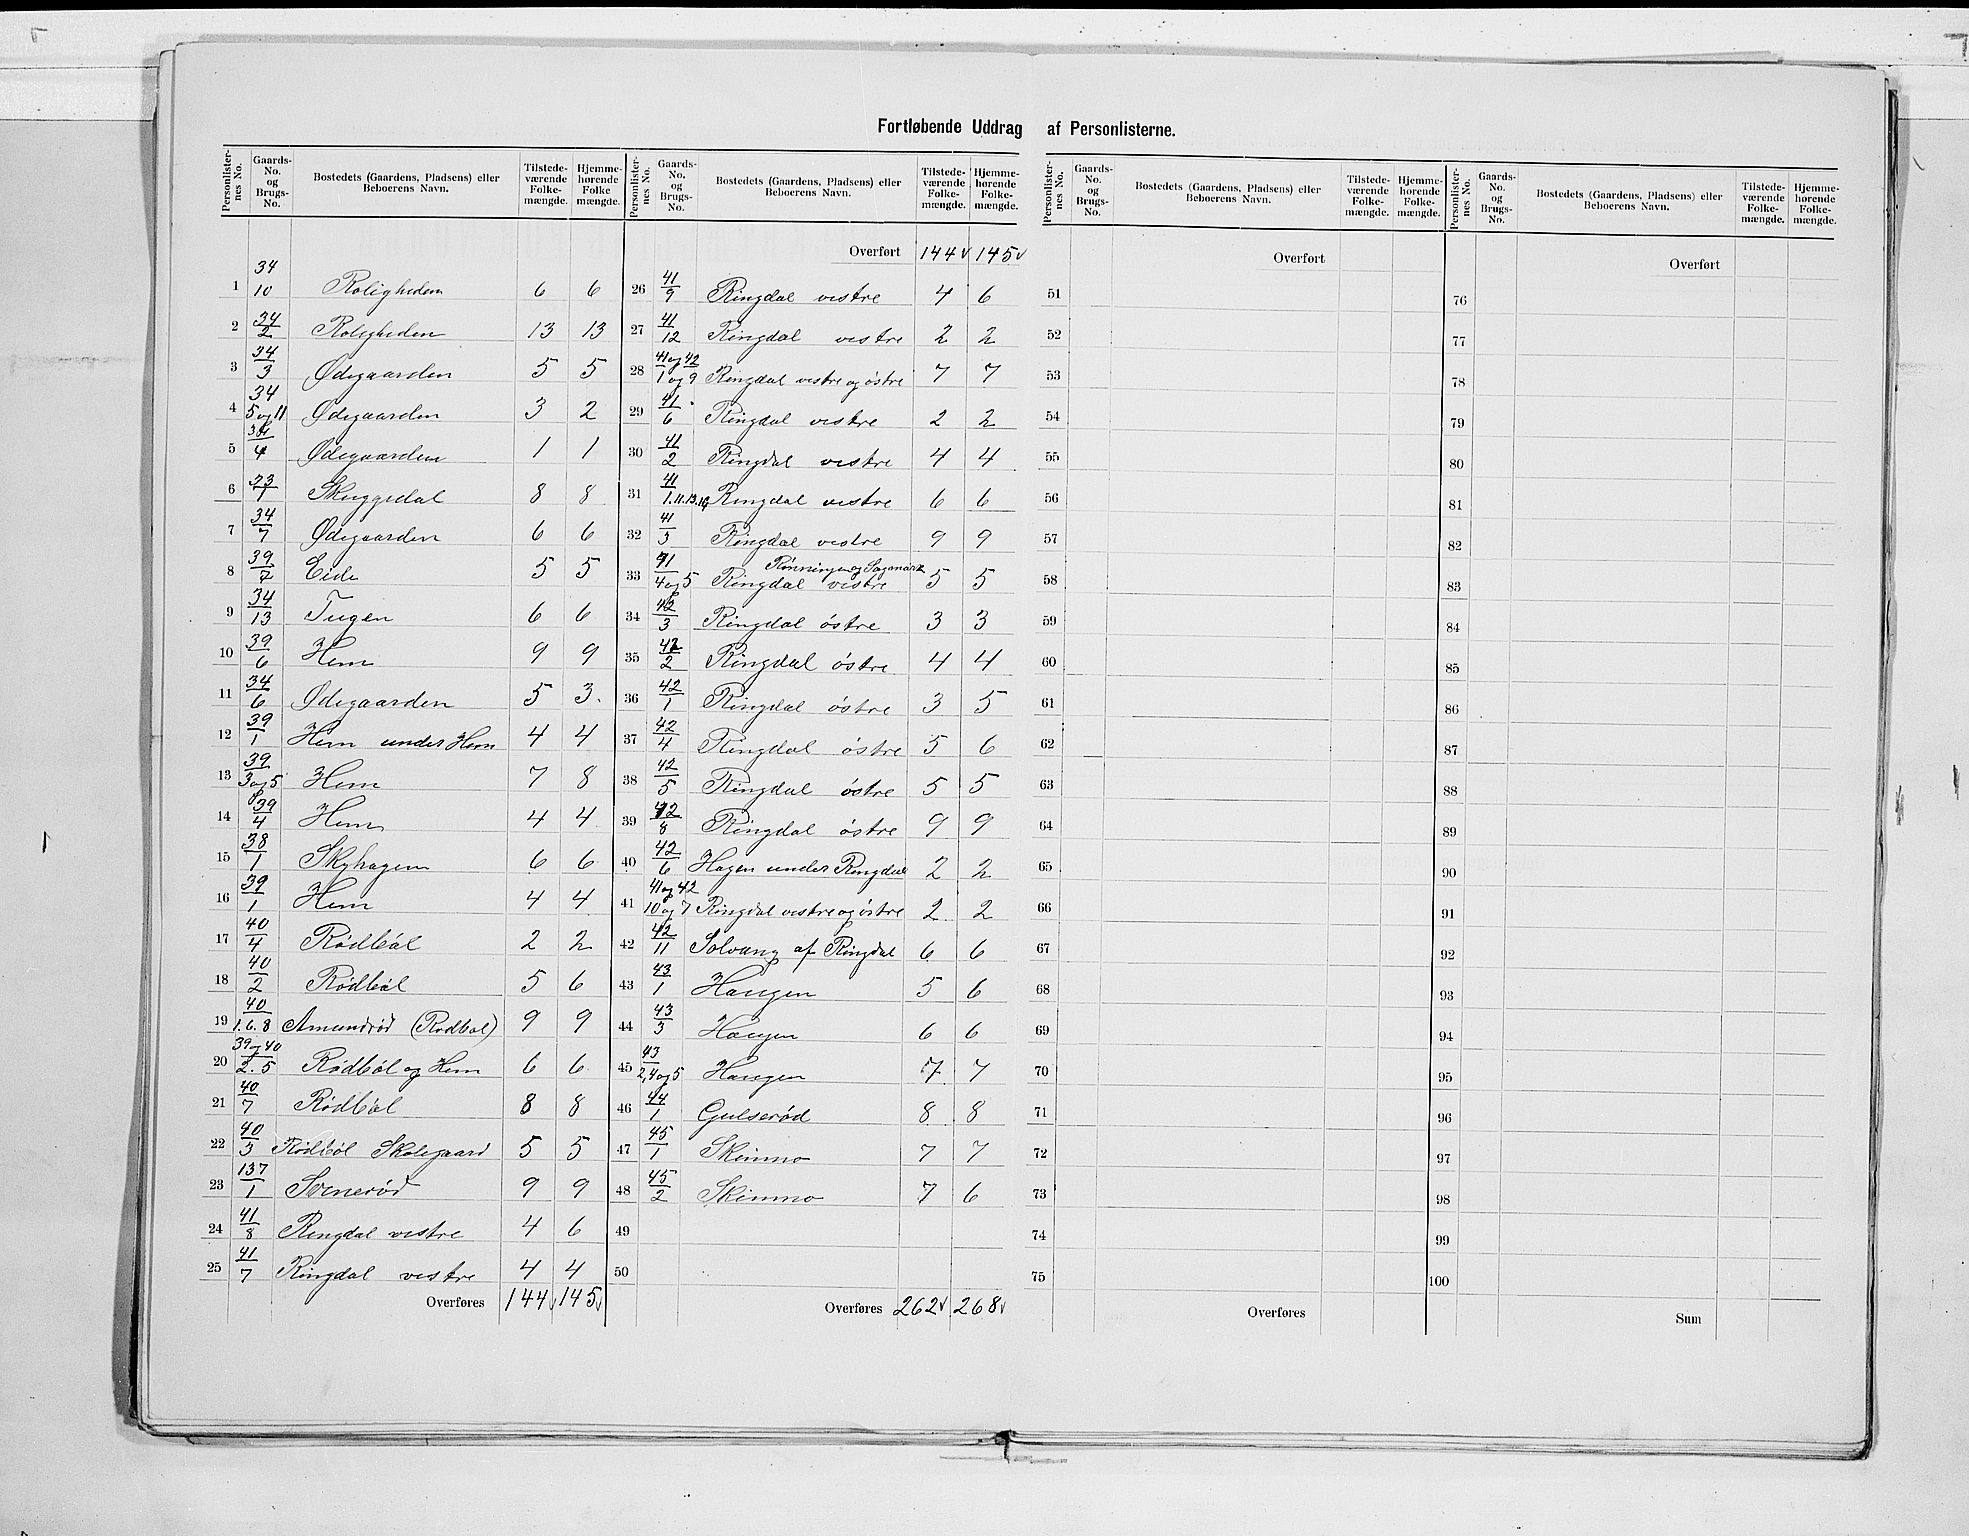 Fortløbende Uddrag af Personlisterne.
Personlister-nes No. Gaards-No. og Brugs-No. Bostedets (Gaardens, Pladsens) eller Beboerens Navn. Tilstede-værende Folke-mængde. Hjemme-hørende Folke mængde.
1 34/10 Roligheden 6 6
2 34/2 Roligheden 13 13
3 34/3 Ødegaarden 5 5
4 34/5 og 11 Ødegaarden 3 2
5 34/4 Ødegaarden 1 1
6 33/1 Skuggedal 8 8
7 34/7 Ødegaarden 6 6
8 39/7 Eide 5 5
9 34/13 Tugen 6 6
10 39/6 Hem 9 9
11 34/6 Ødegaarden 5 3.
12 39/1 Hem under Hem 4 4
13 39/3 og 5 Hem 7 8
14 39/4 Hem 4 4
15 38/1 Skyhagen 6 6
16 39/1 Hem 4 4
17 40/4 Rødbøl 2 2
18 40/2 Rødbøl 5 6
19 40/1.6.8 Amundrød (Rødbøl) 9 9
20 39 og 40/2.5 Rødbøl og Hem 6 6
21 40/7 Rødbøl 8 8
22 40/3 Rødbøl Skolegaard 5 5
23 137/1 Svenerød 9 9
24 41/8 Ringdal vestre 4 6
25 41/7 Ringdal vestre 4 4
Overføres 144 145
Personlister-nes No. Gaards-No. og Brugs-No. Bostedets (Gaardens, Pladsens) eller Beboerens Navn. Tilstede-værende Folke-mængde. Hjemme-hørende Folke-mængde.
Overført 144 145
26 41/9 Ringdal vestre 4 6
27 41/12 Ringdal vestre 2 2
28 41 og 42/1 og 9 Ringdal vestre og østre 7 7
29 41/6 Ringdal vestre 2 2
30 41/2 Ringdal vestre 4 4
31 41/1.11.13.14 Ringdal vestre 6 6
32 41/3 Ringdal vestre 9 9
Rønningen og
33 41/4 og 5 Ringdal vestre 5 5
34 42/3 Ringdal østre 3 3
35 42/2 Ringdal østre 4 4
36 42/1 Ringdal østre 3 5
37 42/4 Ringdal østre 5 6
38 42/5 Ringdal østre 5 5
39 42/8 Ringdal østre 9 9
40 42/6 Hagen under Ringdal 2 2
41 41 og 42/10 og 7 Ringdal vestre og østre 2 2
42 42/11 Solvang af Ringdal 6 6
43 43/1 Haugen 5 6
44 43/3 Haugen 6 6
45 43/2,4 og 5 Haugen 7 7
46 44/1 Gulserød 8 8
47 45/1 Skimmo 7 7
48 45/2 Skimmo 7 6
49
50
Overføres 262 268
Personlister-nes No. Gaards-No. og Brugs-No. Bostedets (Gaardens, Pladsens) eller Beboerens Navn. Tilstede-værende Folke-mængde. Hjemme-hørende Folke-mængde.
Overført
51
52
53
54
55
56
57
58
59
60
61
62
63
64
65
66
67
68
69
70
71
72
73
74
75
Overføres
Personlister-nes No. Gaards-No. og Brugs-No. Bostedets (Gaardens, Pladsens) eller Beboerens Navn. Tilstede-værende Folke-mængde. Hjemme-hørende Folke-mængde.
Overført
76
77
78
79
80
81
82
83
84
85
86
87
88
89
90
91
92
93
94
95
96
97
98
99
100
Sum